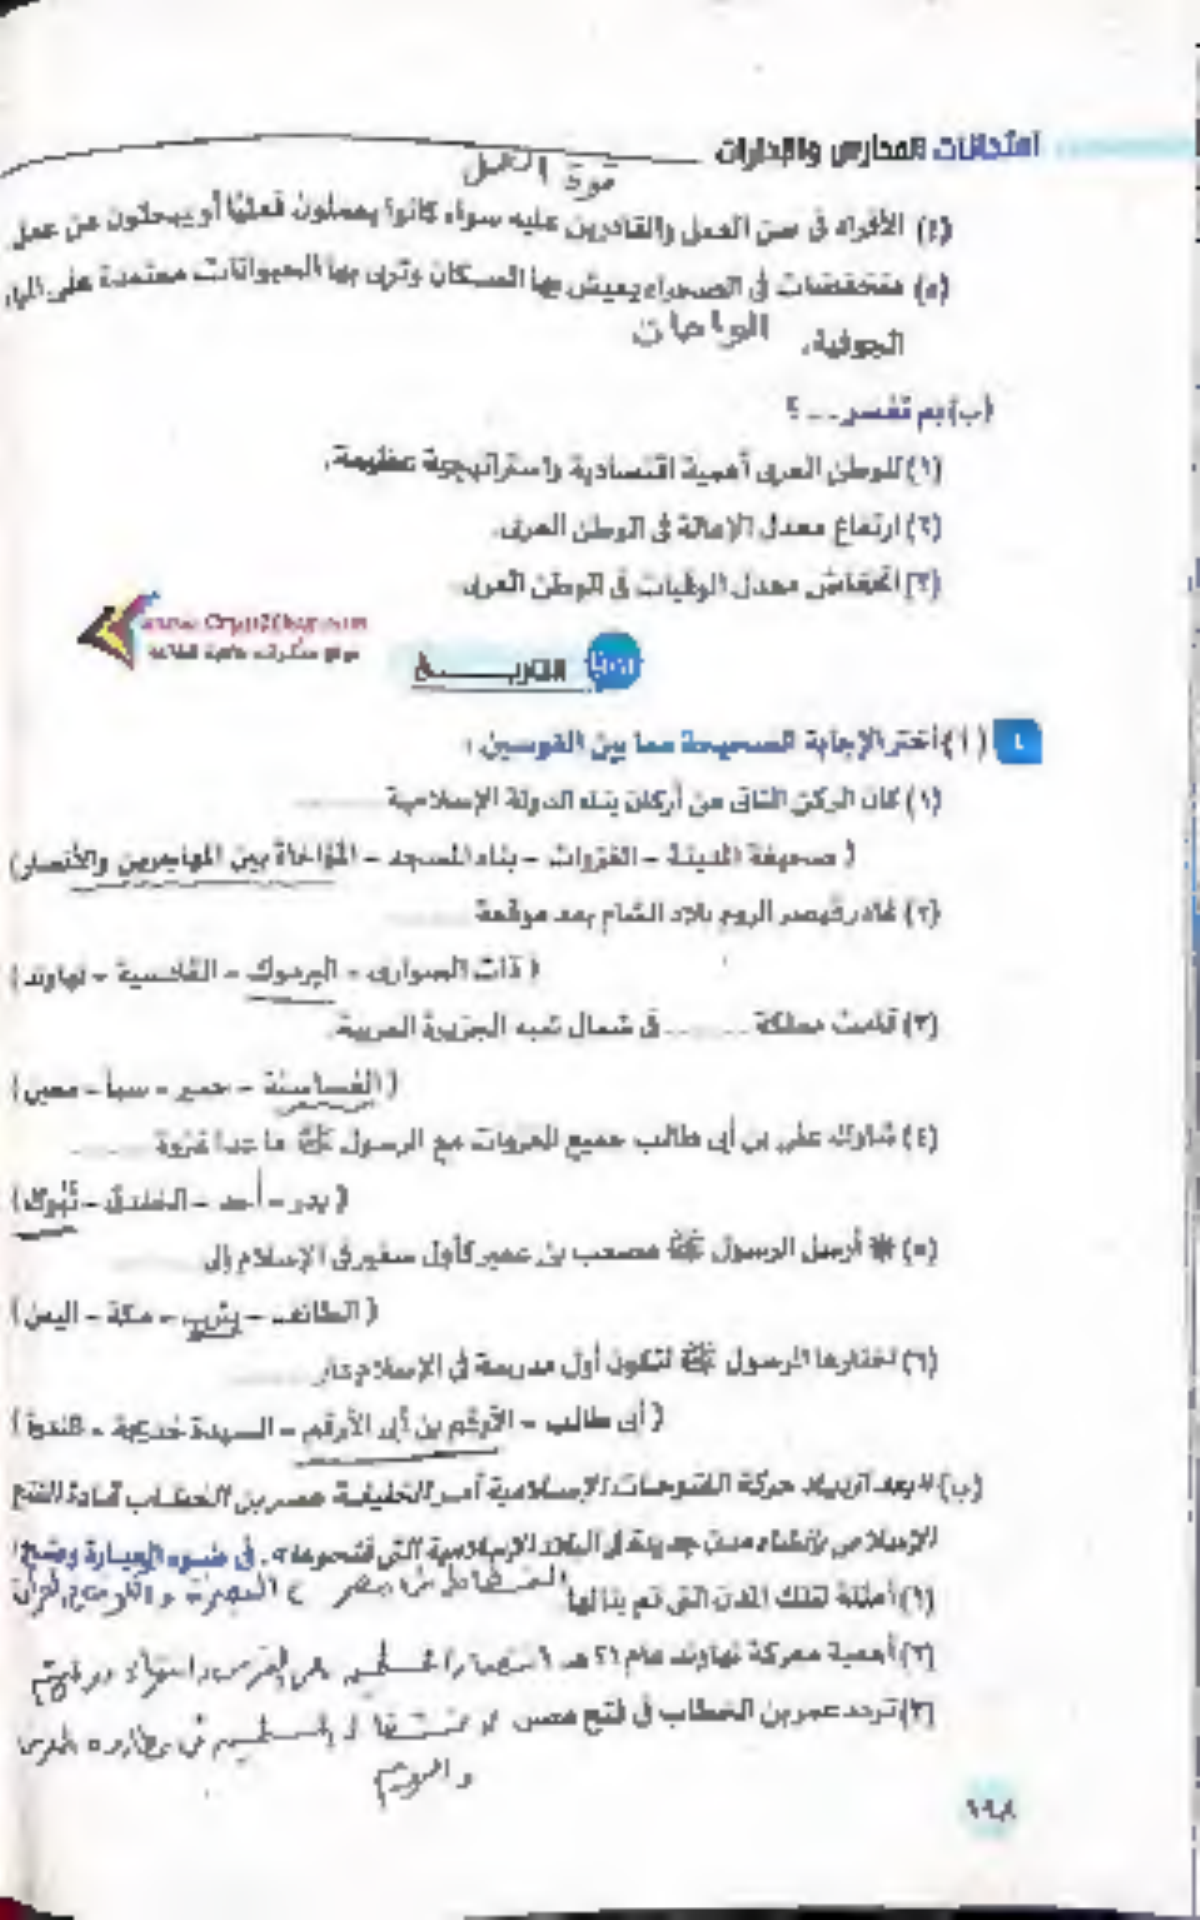 امتحانات المدارس والإدارات
قوة العمل
(٤) الأفراد فى سن العمل والقادرين عليه سواء كانوا يعملون فعليًا أو يبحثون عن عمل
(٥) منخفضات فى الصحراء يعيش بها السكان وتربى بها الحيوانات معتمدة على المياه
الجوفية. الواحات
(ب) بم تفسر ... ؟
(١) للوطن العربى أهمية اقتصادية واستراتيجية عظيمة.
(٢) ارتفاع معدل الإعالة فى الوطن العربى.
(٣) انخفاض معدل الوفيات فى الوطن العربى.
التاريــــــخ
٤ (أ) اختر الإجابة الصحيحة مما بين القوسين :
(١) كان الركن الثانى من أركان بناء الدولة الإسلامية ........
( صحيفة المدينة – الغزوات – بناء المسجد – المؤاخاة بين المهاجرين والأنصار)
(٢) غادر قيصر الروم بلاد الشام بعد موقعة ........
( ذات الصوارى – اليرموك – القادسية – نهاوند )
(٣) قامت مملكة ........ فى شمال شبه الجزيرة العربية.
( الغساسنة – حمير – سبأ – معين )
(٤) شارك على بن أبى طالب جميع الغزوات مع الرسول ﷺ ما عدا غزوة ........
( بدر – أحد – الخندق – تبوك )
(٥) * أرسل الرسول ﷺ مصعب بن عمير كأول سفير فى الإسلام إلى ........
( الطائف – يثرب – مكة – اليمن )
(٦) اختارها الرسول ﷺ لتكون أول مدرسة فى الإسلام دار ........
( أبى طالب – الأرقم بن أبى الأرقم – السيدة خديجة – الندوة )
(ب) « بعد ازدياد حركة الفتوحات الإسلامية أمر الخليفة عمر بن الخطاب قادة الفتح
الإسلامى بإنشاء مدن جديدة فى البلاد الإسلامية التى فتحوها ». فى ضوء العبارة وضح :
(١) أمثلة لتلك المدن التى تم بنائها الفسطاط فى مصر البصرة والكوفة
(٢) أهمية معركة نهاوند عام ٢١ هـ انتصار المسلمين على الفرس وانتهاء
(٣) تردد عمر بن الخطاب فى فتح مصر. لانشغال المسلمين فى الفرس
والروم
١٩٨